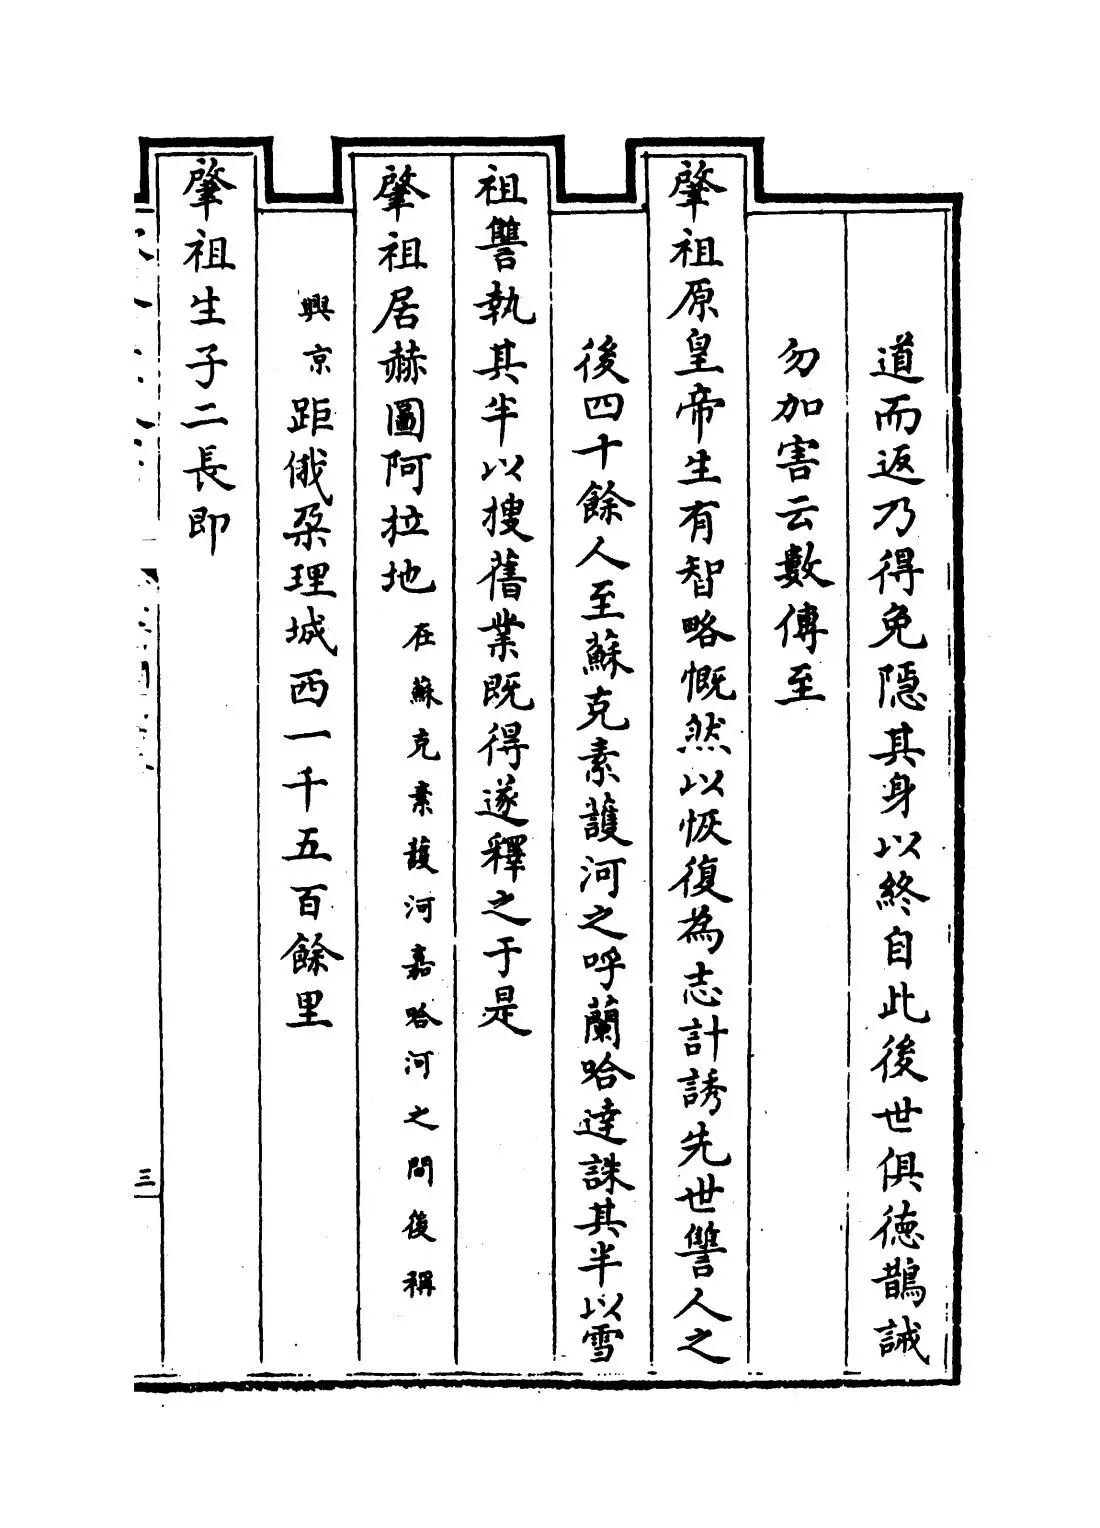 道而返乃得免隱其身以終自此後世俱徳鵲誡
勿加害云數傳至
肇祖原皇帝生有智略慨然以恢復為志計誘先世讐人之
後四十餘人至蘇克素護河之呼蘭哈達誅其半以雪
祖讐執其半以搜舊業既得遂釋之于是
肇祖居赫圖阿拉地在蘇克素護河嘉哈河之間後稱
興京距俄朶理城西一千五百餘里
肇祖生子二長即
三